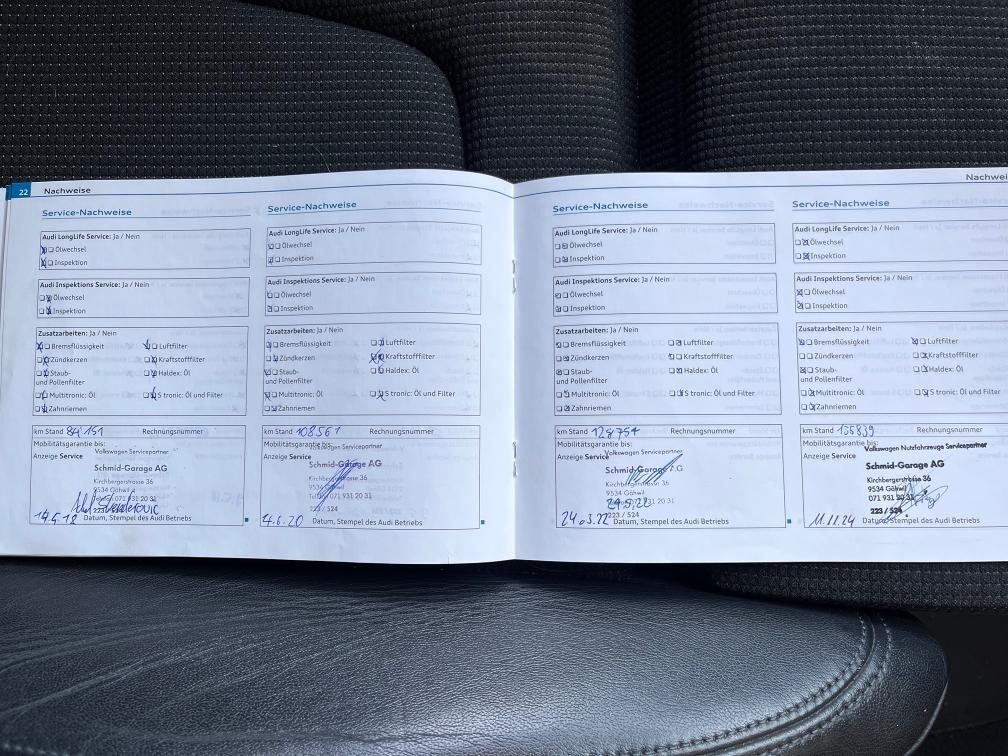 22 Nachweise
Service-Nachweise
Audi LongLife Service: Ja / Nein
Ölwechsel
Inspektion
Audi Inspektions Service: Ja / Nein
Ölwechsel
Inspektion
Zusatzarbeiten: Ja / Nein
Bremsflüssigkeit Luftfilter
Zündkerzen Kraftstofffilter
Staub- Haldex: Öl
und Pollenfilter
Multitronic: Öl S tronic: Öl und Filter
Zahnriemen
km Stand 84 151 Rechnungsnummer
Mobilitätsgarantie bis:
Volkswagen Servicepartner
Anzeige Service
Schmid-Garage AG
Kirchbergerstrasse 36
9534 Gähwil
071 931 20 31
14.5.18 Datum, Stempel des Audi Betriebs
Service-Nachweise
Audi LongLife Service: Ja / Nein
Ölwechsel
Inspektion
Audi Inspektions Service: Ja / Nein
Ölwechsel
Inspektion
Zusatzarbeiten: Ja / Nein
Bremsflüssigkeit Luftfilter
Zündkerzen Kraftstofffilter
Staub- Haldex: Öl
und Pollenfilter
Multitronic: Öl S tronic: Öl und Filter
Zahnriemen
km Stand 108561 Rechnungsnummer
Mobilitätsgarantie bis:
Volkswagen Servicepartner
Anzeige Service
Schmid-Garage AG
Kirchbergerstrasse 36
9534 Gähwil
071 931 20 31
223 / 524
4.6.20 Datum, Stempel des Audi Betriebs
Service-Nachweise
Audi LongLife Service: Ja / Nein
Ölwechsel
Inspektion
Audi Inspektions Service: Ja / Nein
Ölwechsel
Inspektion
Zusatzarbeiten: Ja / Nein
Bremsflüssigkeit Luftfilter
Zündkerzen Kraftstofffilter
Staub- Haldex: Öl
und Pollenfilter
Multitronic: Öl S tronic: Öl und Filter
Zahnriemen
km Stand 128754 Rechnungsnummer
Mobilitätsgarantie bis:
Volkswagen Servicepartner
Anzeige Service
Schmid-Garage AG
Kirchbergerstrasse 36
9534 Gähwil
931 20 31
223 / 524
Datum, Stempel des Audi Betriebs
Nachwei
Service-Nachweise
Audi LongLife Service: Ja / Nein
Ölwechsel
Inspektion
Audi Inspektions Service: Ja / Nein
Ölwechsel
Inspektion
Zusatzarbeiten: Ja / Nein
Bremsflüssigkeit Luftfilter
Zündkerzen Kraftstofffilter
Staub- Haldex: Öl
und Pollenfilter
Multitronic: Öl S tronic: Öl und Filter
Zahnriemen
km Stand Rechnungsnummer
Mobilitätsgarantie bis:
Volkswagen Nutzfahrzeuge Servicepartner
Anzeige Service
Schmid-Garage AG
Kirchbergerstrasse 36
9534 Gähwil
071 931 20 31
223 / 524
11.11.24 Datum, Stempel des Audi Betriebs